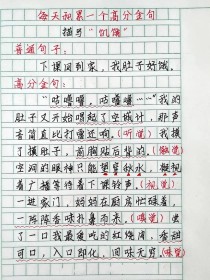 每天积累一个高分金句
描写“饥饿”
普通句子：
下课回到家，我肚子好饿。
高分金句：
“咕噜噜，咕噜噜……”我的
肚子又开始唱起了空城计，那声
音简直比打雷还响。（听觉）我摸
了摸肚子，前胸贴后背的。（触觉）
空洞的眼神只能望穿秋水，模视
着广播等待着下课铃声。（视觉）
一进家门，妈妈在厨房忙碌着，
一阵阵香味扑鼻而来。（嗅觉）尝
了一口我最爱吃的红烧肉，香嫩
可口，入口即化，回味无穷（味觉）